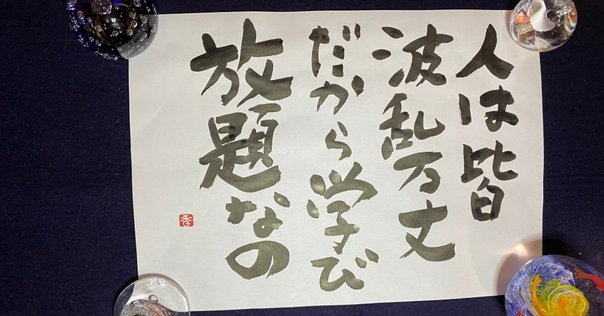 人は皆
波乱万丈
だから学び
放題なの
香